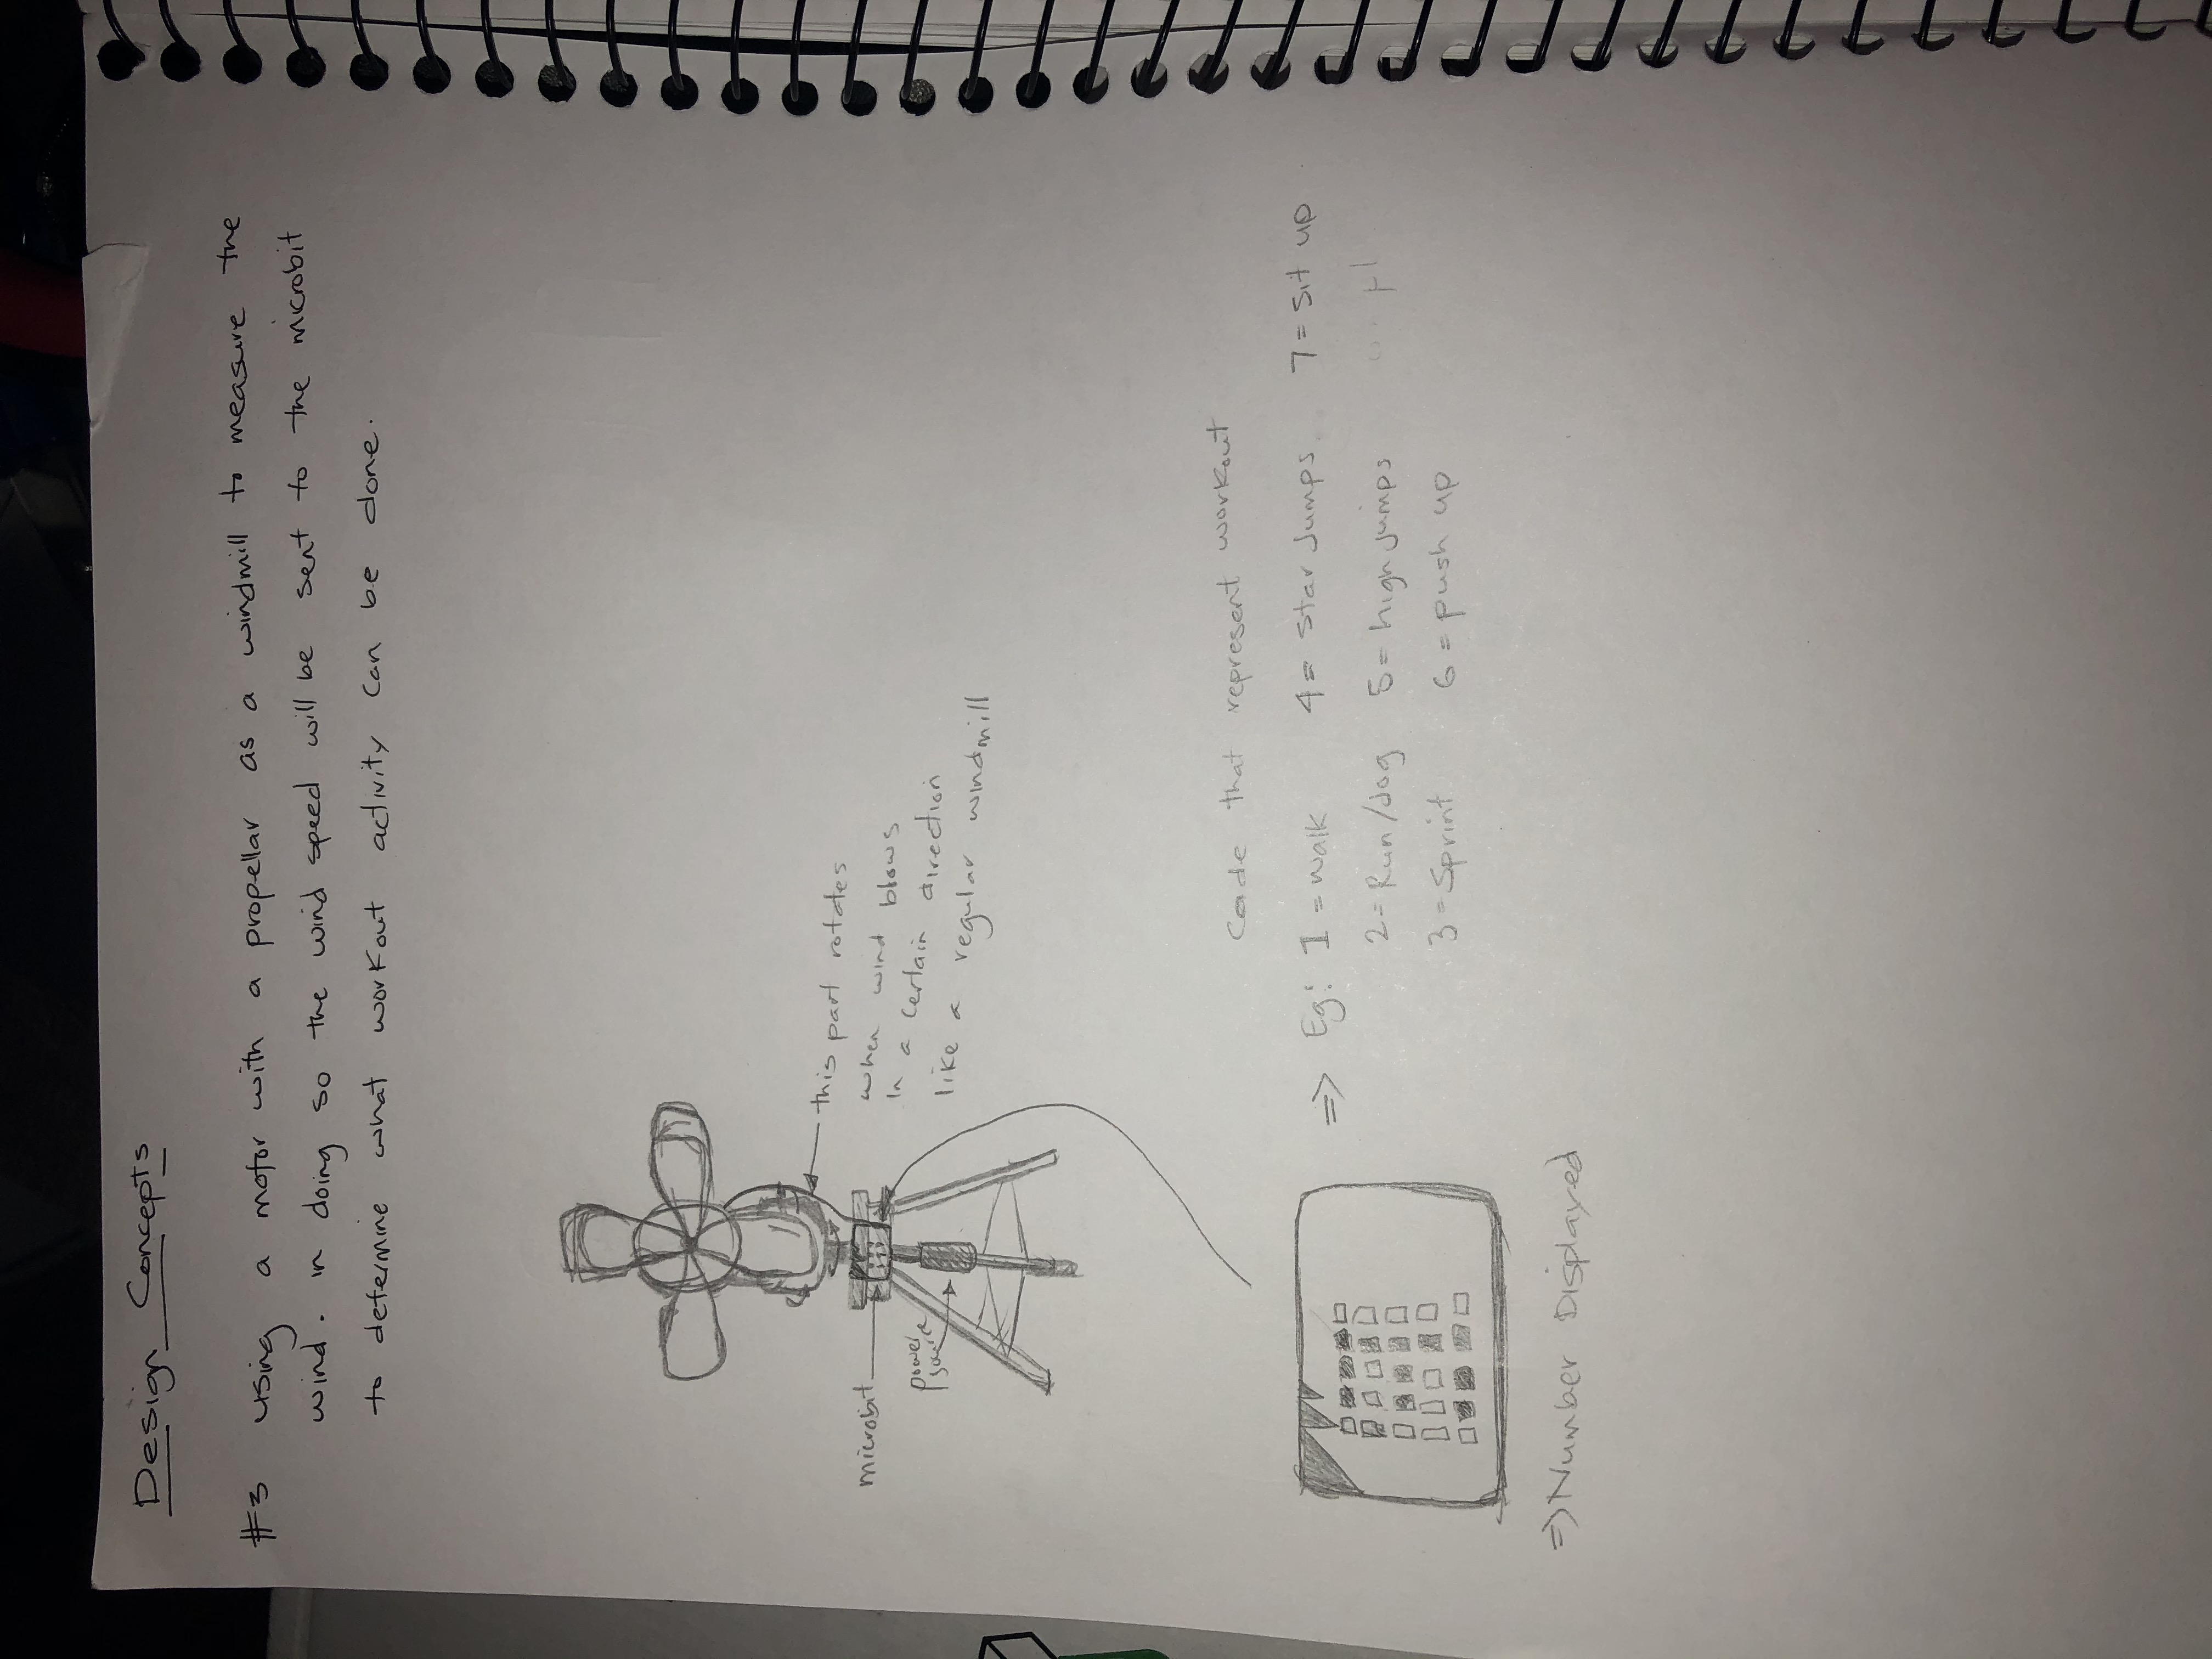 Design Concepts
#3 using a motor with a propellar as a windmill to measure the
wind. in doing so the wind speed will be sent to the microbit
to determine what workout activity can be done.
this part rotates
when wind blows
in a certain direction
like a regular windmill
microbit
power
source
Code that represent workout
⇒ Eg: 1 = walk 4 = Star Jumps. 7 = sit up
2 = Run/Jog 5 = high jumps
3 = Sprint 6 = push up
⇒ Number Displayed